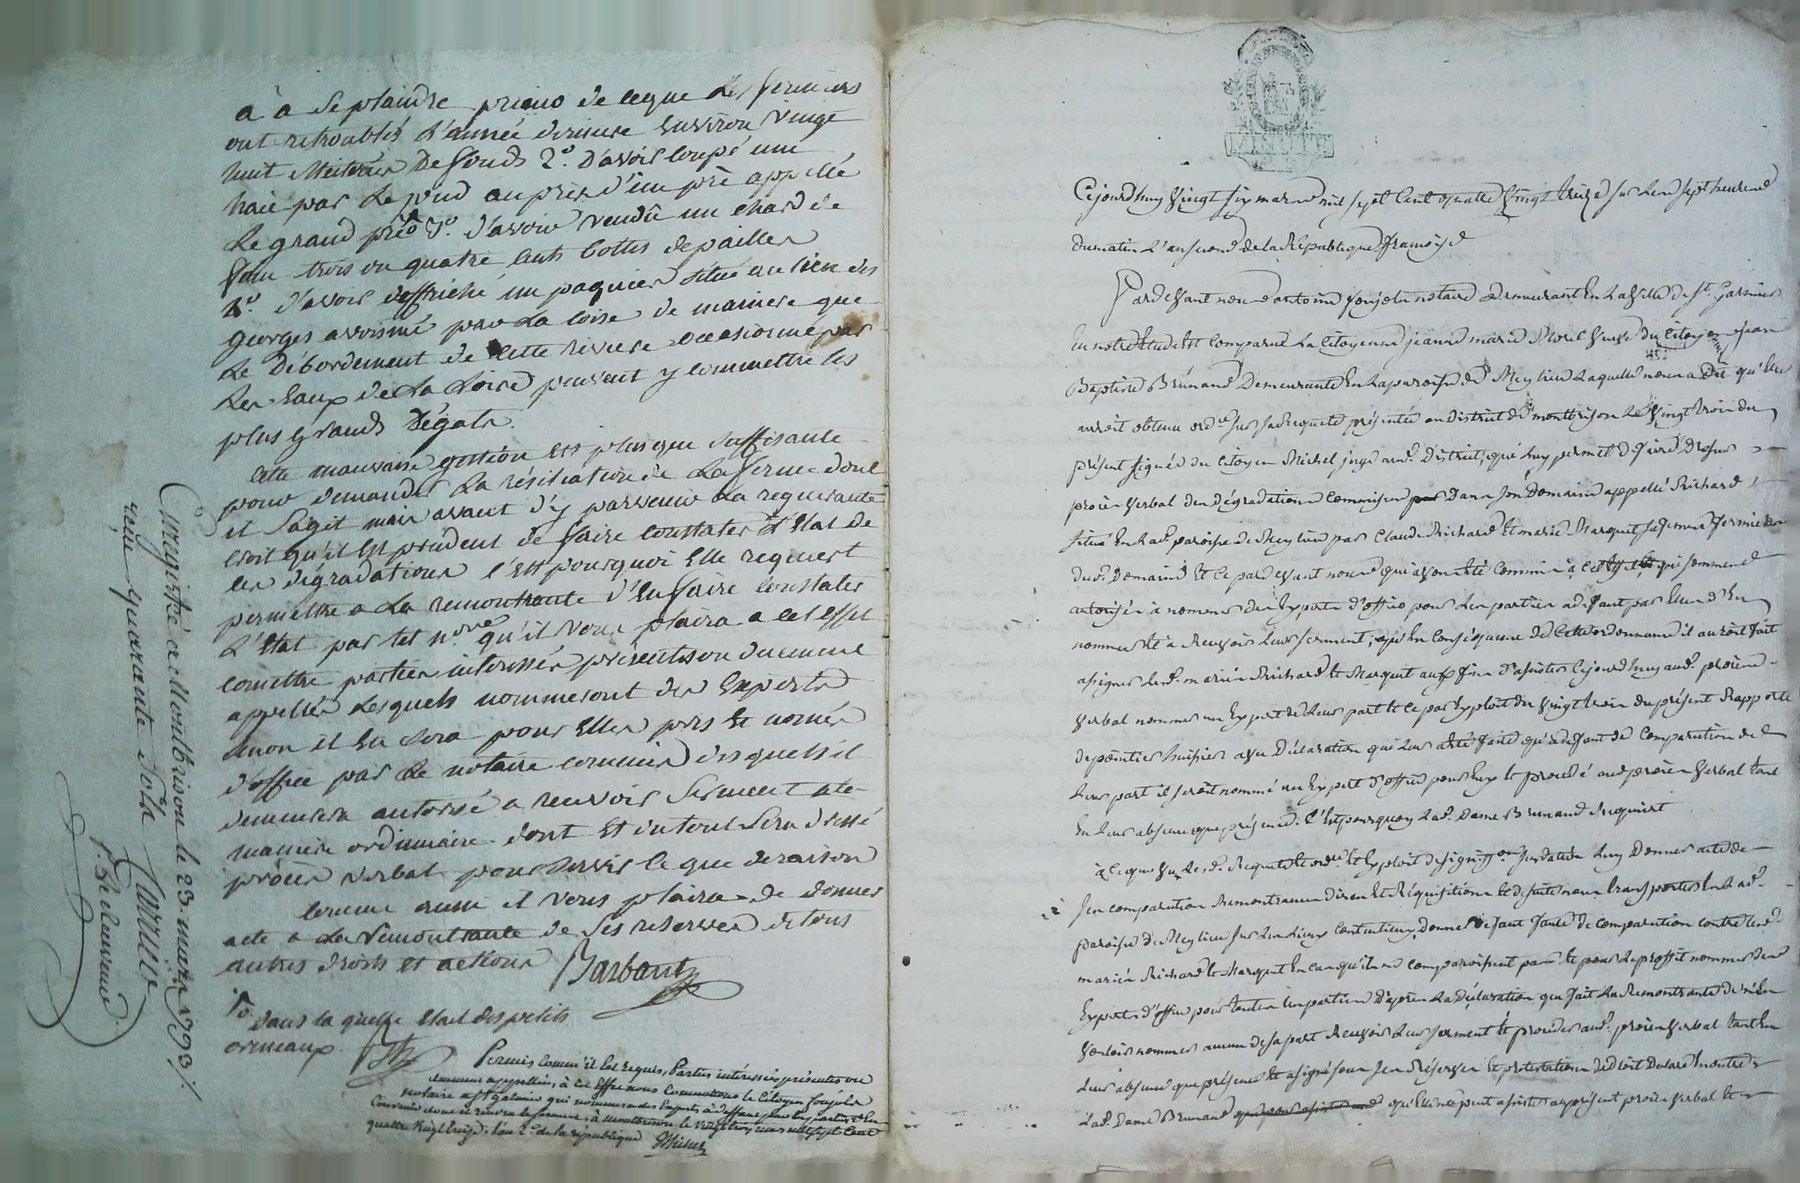 a a se plaindre primo de ceque les fermiers
ont retroublés l'année derniere environ vingt
huit Meiterées de fonds 2°. D'avoir coupé une
haie par le pied aupres d'un pré appellé
Le grand pré 3°. d'avoir vendu un chard de
foin trois ou quatre cents bottes de pailles
4°. d'avoir deffriché un paquier situé au lieu des
georges avoisiné par La Loire de maniere que
Le Débordement de cette riviere occasionné par
Les Eaux de la Loire peuvent y commettre les
plus grands Dégats.
Cette mauvaise gestion est plus que suffisante
pour demander La résiliation de La ferme dont
il s'agit mais avant d'y parvenir La requerante
croit qu'il Est prudent de faire constater L'Etat de
ces dégradations c'Est pourquoi Elle requiert
permettre a La remontrante d'En faire constater
L'Etat par tel n.re qu'il vous plaira a cet effet
comettre parties interessées présentes ou duement
appellées Lesquels nommeront des Experts
sinon il En sera pour Elles pris Et només
d'office par Le notaire commis desquels il
demeurera autorisé a recevoir serment a la
maniere ordinaire dont Et du tout sera dressé
procès verbal pour servir ce que de raison
comme aussi il vous plaira de donner
acte a La Remontrante de ses reserves de tous
autres droits et actions Barbant
dans la quelle etait des petits
ormeaux.
Permis comm'il Est requis, Parties intéressées présentes ou
duement appellées, à cet Effet nous Commettons le Citoyen foujols
notaire a St galmier qui nommera des Experts d'office pour les parties En
Convenir donc et recevra le serment, à montbrison le vingt trois mars mil sept Cent
quatre Vingt treize, l'an 2.e de la république Michel
Enregistré a Montbrison le 23. mars 1793 /.
reçu quarante sols
Cejourdhuy Vingt six mars mil sept Cent quatre Vingt treize sur Les sept heures
du matin L'an second de la République françoise
Pardevant nous antoine foujols notaire demeurant En La Ville de St. Garmier
En notre Etude Est comparue La Citoyenne jeanne marie Veuve du Citoyen jean
Baptiste Brunand Demeurante En La paroisse de Meylieu Laquelle nous a dit qu'elle
auroit obtenu ord.ce sur sa Requete présentée au District de montbrison Le Vingt trois du
présent signée du Citoyen Michel juge aud. District, qui Luy permet de faire dresser
procès verbal des dégradations commises dans son Domaine appellé Richard
situé En Lad. paroisse de Meylieu par Claude Richard Et marie Marquet sa femme fermiers
dud. Domaine Et ce pardevant nous qui avons été commis à cet Effet, qui sommes
autorisés à nommer des Experts d'office pour Les parties a defaut par Elles d'En
nommer Et à Recevoir Leur serment, qu'En Conséquence de Cette ordonnance il auroit fait
assigner Lesd. mariés Richard Et Marquet aux fins d'assister Cejourdhuy aud. procès
verbal nommer un Expert de Leur part Et ce par Exploit du Vingt trois du présent Rapporté
depointier huissier avec Déclaration qui Leur a été faite qu'a defaut de Comparution de
Leur part il seroit nommé un Expert d'office pour Eux Et procédé aud. procès verbal tant
En Leur absence que présence. C'Est pourquoy Lad. Dame Brunand Requiert
à ce que Vu Lesd. Requete Et ord.ce Et Exploit de signiff.on Luy Donner acte de
Ses comparution Remontrances dires Et Réquisitions Et de suite nous transporter En Lad.
paroisse de Meylieu sur Les Lieux Contentieux, donner défaut faute de comparution contre Lesd.
mariés Richard Et Marquet En cas qu'ils ne comparoissent pas Et pour Le proffit nommer des
Experts d'office pour toutes Les parties D'apres La Déclaration que fait La Remontrante de n'En
Vouloir nommer aucun de sa part Recevoir Leur serment Et procéder aud. procès Verbal tant En
Leur absence que présence Et
Lad. Dame Brunand qu'Elle ne peut assister au présent procès verbal Et